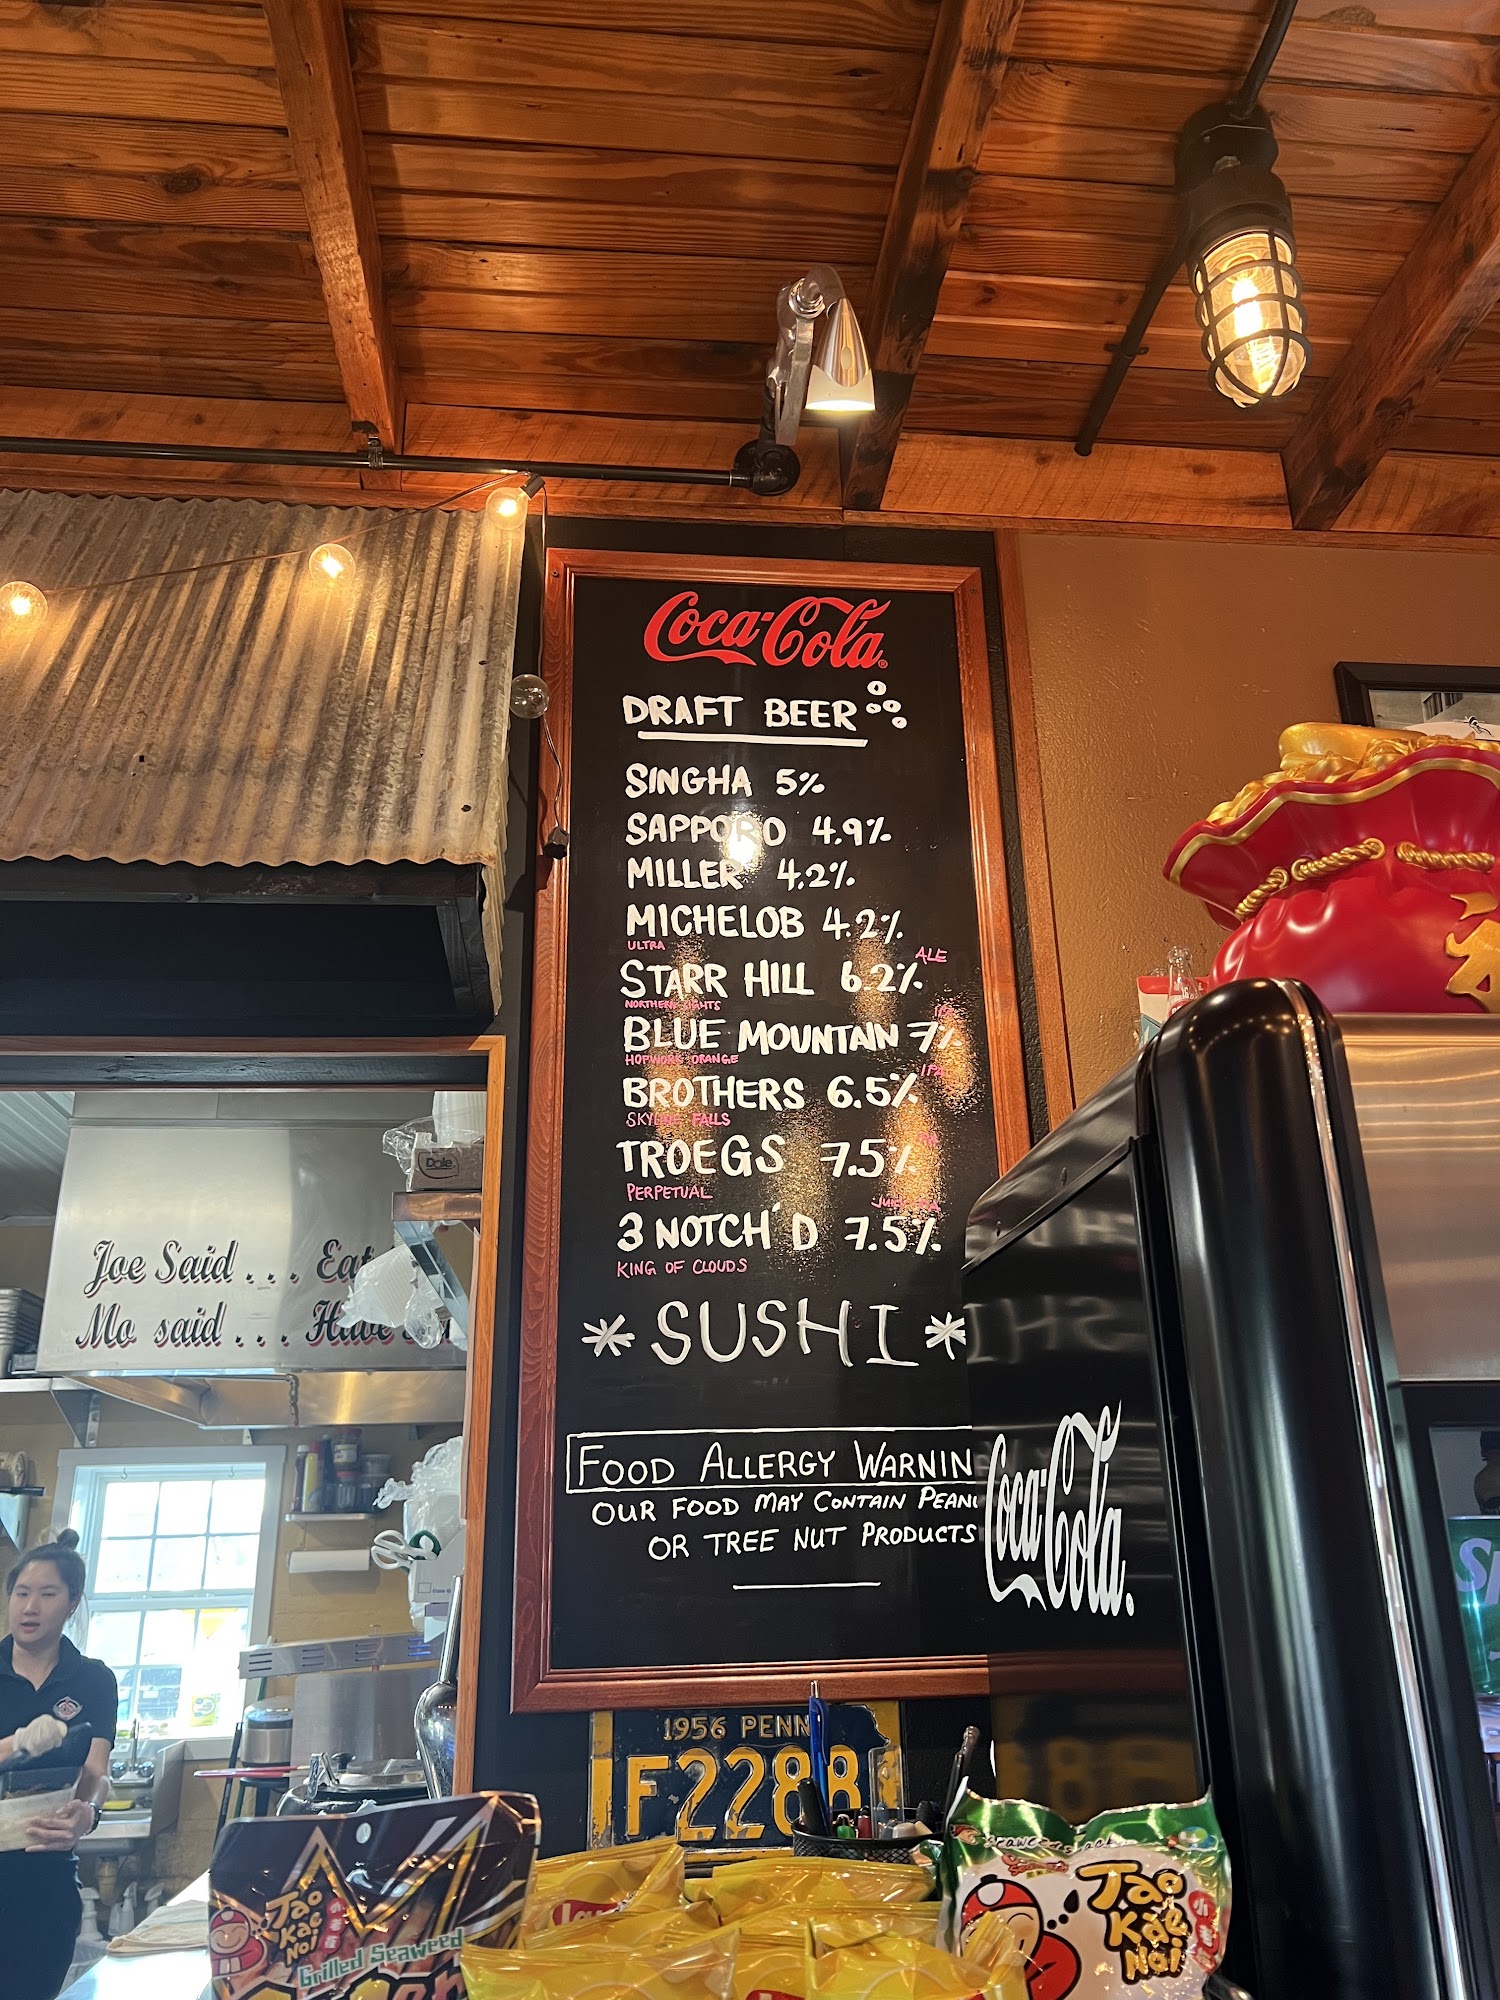 Coca-Cola
DRAFT BEER
SINGHA 5%
SAPPORO 4.9%
MILLER 4.2%
MICHELOB 4.2%
ULTRA
ALE
STARR HILL 6.2%
NORTHERN LIGHTS
BLUE MOUNTAIN 7%
HOPWORK ORANGE
IPA
BROTHERS 6.5%
SKYLINE FALLS
TROEGS 7.5%
PERPETUAL
3 NOTCH'D 7.5%
KING OF CLOUDS
* SUSHI *
FOOD ALLERGY WARNIN
OUR FOOD MAY CONTAIN PEANU
OR TREE NUT PRODUCTS
Coca-Cola
Dole
Joe Said . . . Eat
Mo said . . .
1956 PENN
F2288
Tao Kae Noi
Grilled Seaweed
seaweed snack
Tao Kae Noi